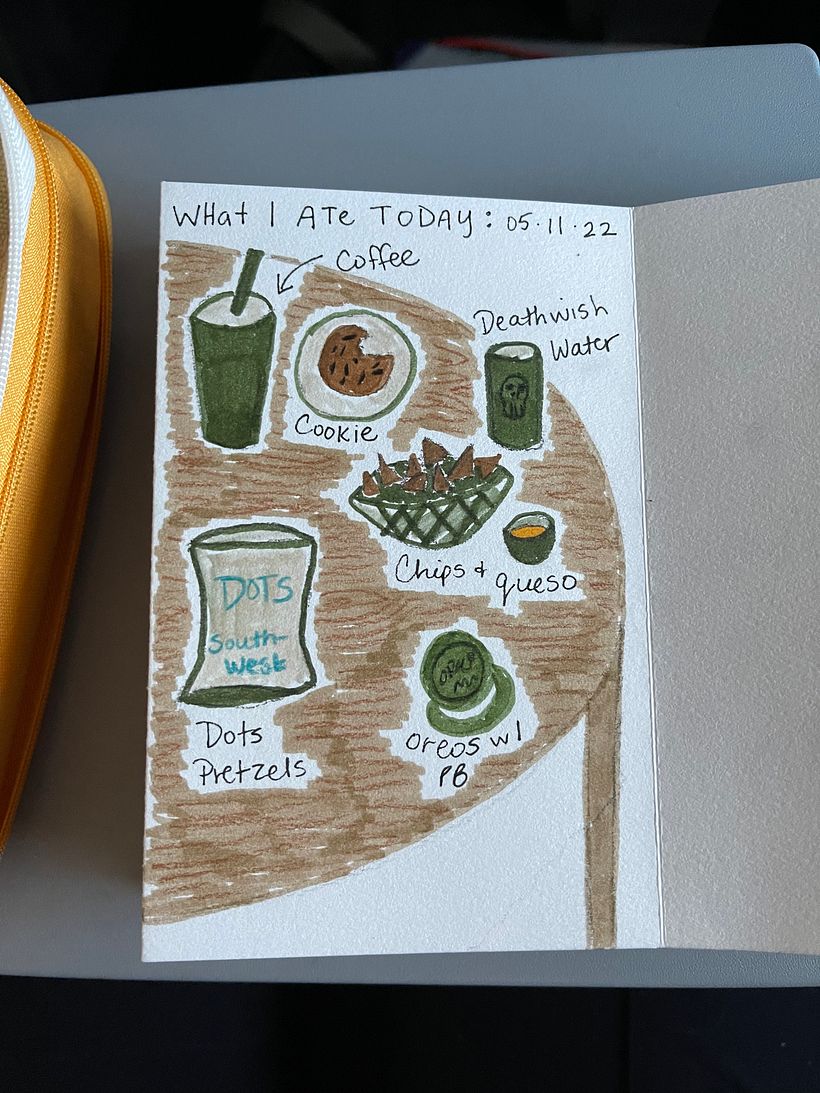 WHat I ATe TODAY: 05.11.22
Coffee
Deathwish
Water
Cookie
Chips + queso
DOTS
South-
West
Dots
Pretzels
Oreos w/
PB